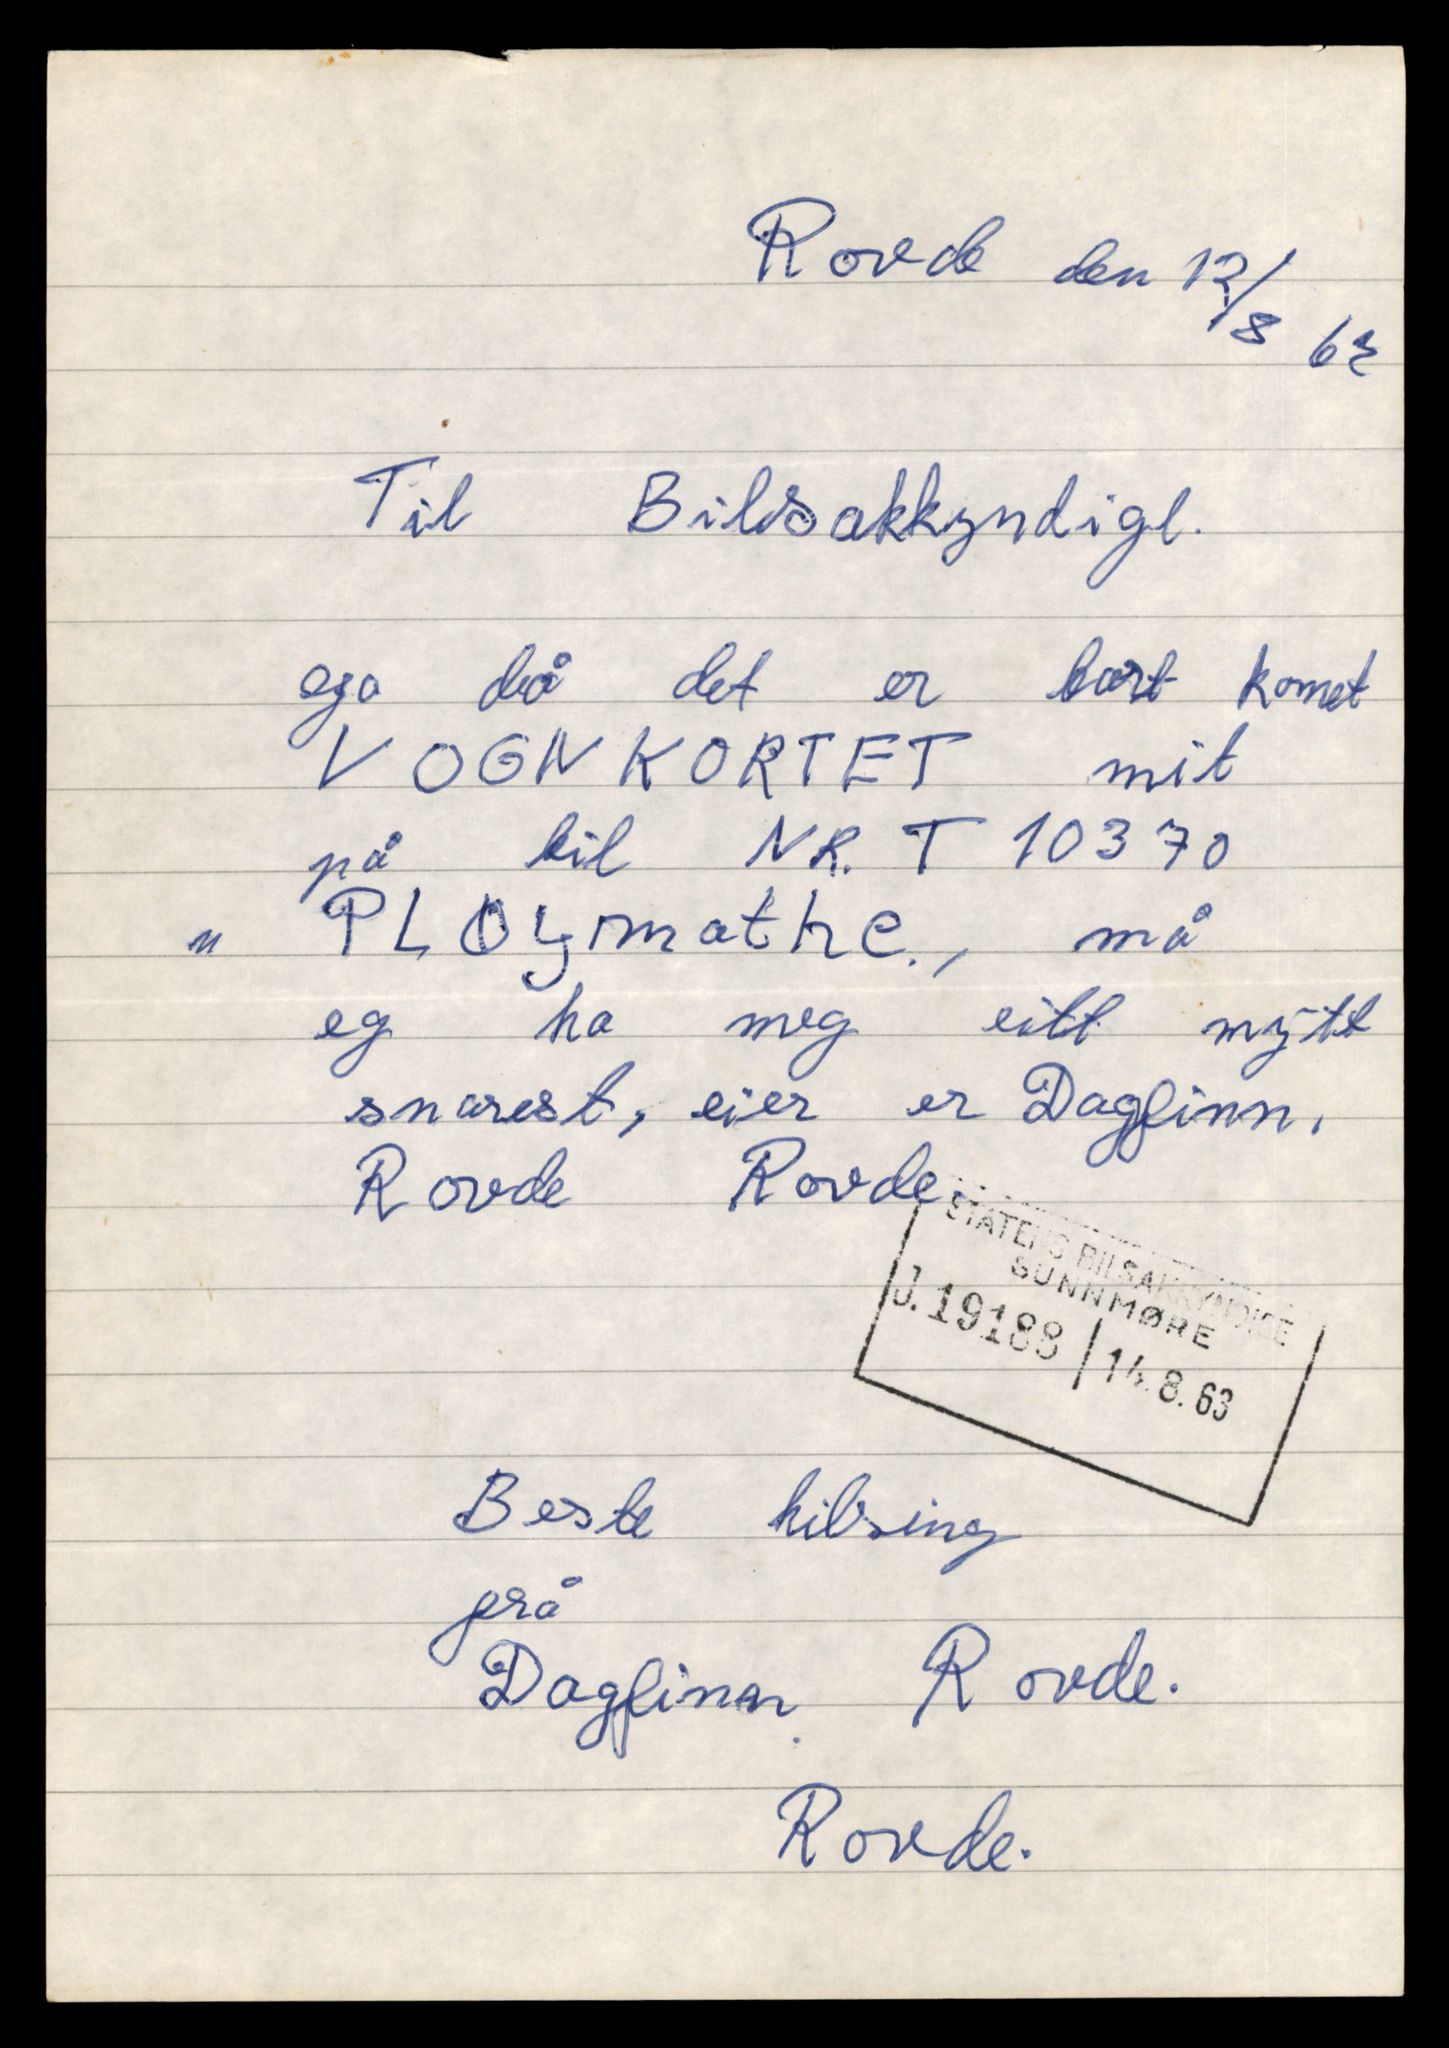 Rovde den 12/8 63
Til Bilsakkyndigl.
då det er bort komet
VOGNKORTET mit
på bil NR. T 10370
" PLOymathe., må
eg ha meg eitt nytt
snarest, eier er Dagfinn,
Rovde Rovde.
STATENS BILSAKKYNDIGE
SUNNMØRE
J. 19188 | 14. 8. 63
Beste hilsing
frå
Dagfinn Rovde.
Rovde.